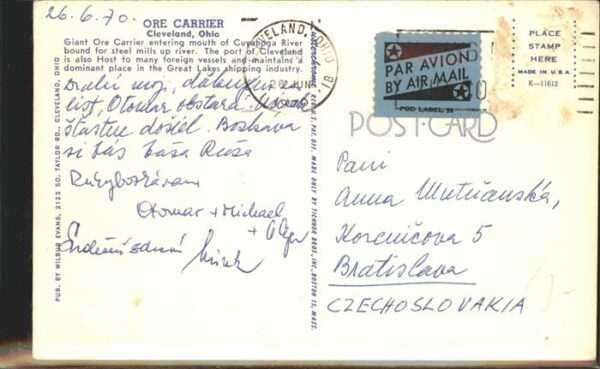 26.6.70.
ORE CARRIER
Cleveland, Ohio
Giant Ore Carrier entering mouth of Cuyahoga River
bound for steel mills up river. The port of Cleveland
is also Host to many foreign vessels and maintains a
dominant place in the Great Lakes shipping industry.
Drahí moji, ďakujem za
list, Otomar
šťastne došiel. Bozkáva
si Vás Vaša Ruža
Otomar + Michael
+ Olga
Srdečne zdraví
PUB. BY WILBUR EVANS, 2122 SO. TAYLOR RD., CLEVELAND, OHIO
MADE ONLY BY TICHNOR BROS., INC., BOSTON 15, MASS.
CLEVELAND, OHIO
26 JUN
1970
PAR AVION
BY AIR MAIL
POD LABEL 19
PLACE
STAMP
HERE
MADE IN U.S.A.
K-11612
POST CARD
Pani
Anna
5
Bratislava
CZECHOSLOVAKIA